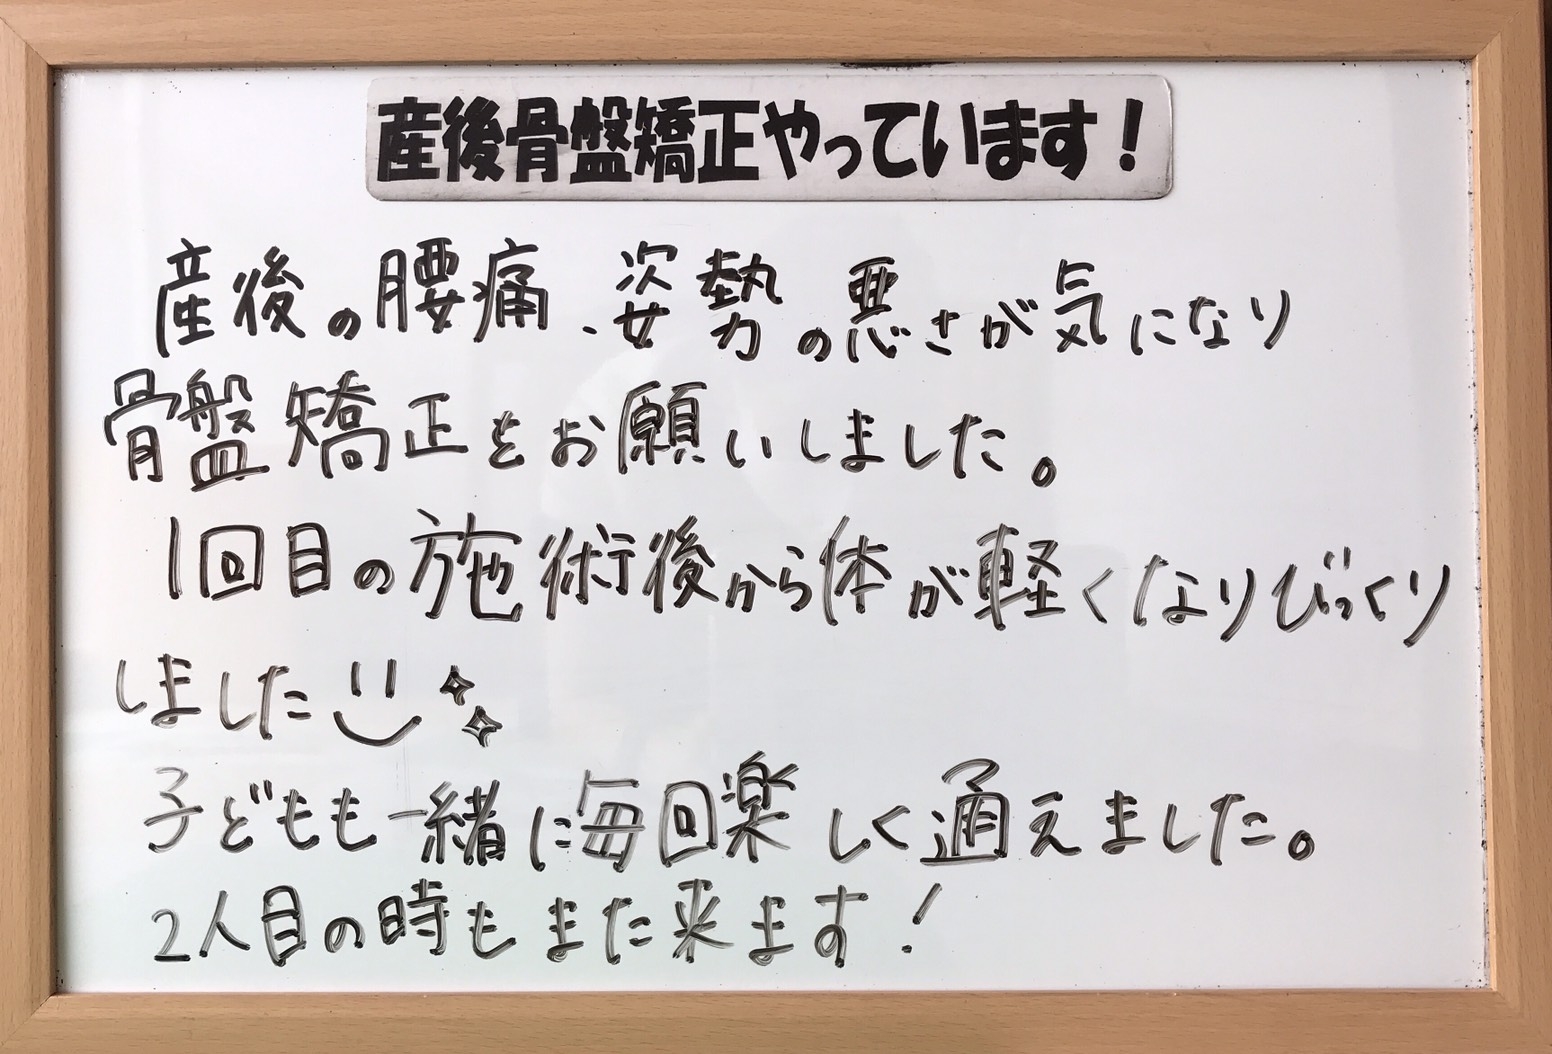 産後骨盤矯正やっています！
産後の腰痛、姿勢の悪さが気になり
骨盤矯正をお願いしました。
1回目の施術後から体が軽くなりびっくり
しました
子どもも一緒に毎回楽しく通えました。
2人目の時もまた来ます！